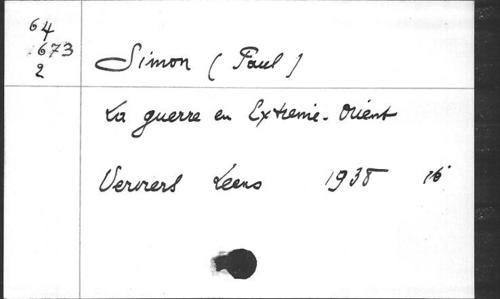 64
1673
2
Simon (Paul)
La guerre en Extreme-Orient
Verviers Leens 1938 16°